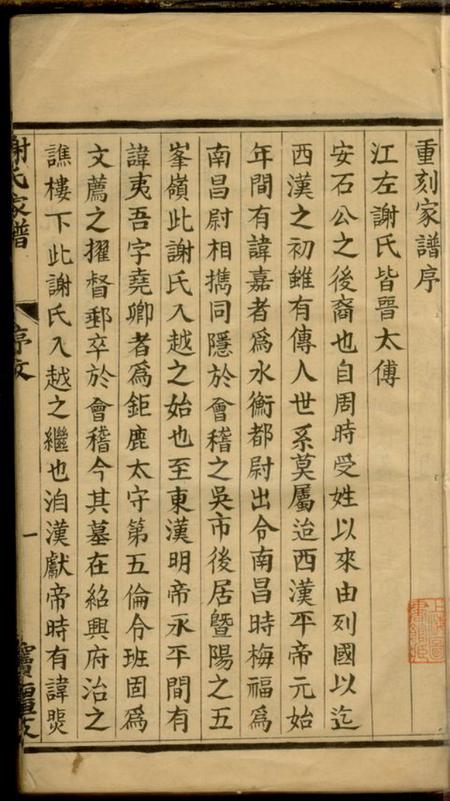 重刻家譜序
江左謝氏皆晉太傅
安石公之後裔也自周時受姓以來由列國以迄
西漢之初雖有傳人世系莫屬迨西漢平帝元始
年間有諱嘉者爲水衡都尉出令南昌時梅福爲
南昌尉相攜同隱於會稽之吳市後居曁陽之五
峯嶺此謝氏入越之始也至東漢明帝永平間有
諱夷吾字堯卿者爲鉅鹿太守第五倫令班固爲
文薦之擢督郵卒於會稽今其墓在紹興府治之
譙樓下此謝氏入越之繼也洎漢獻帝時有諱煚
謝氏家譜
序文
一
寶